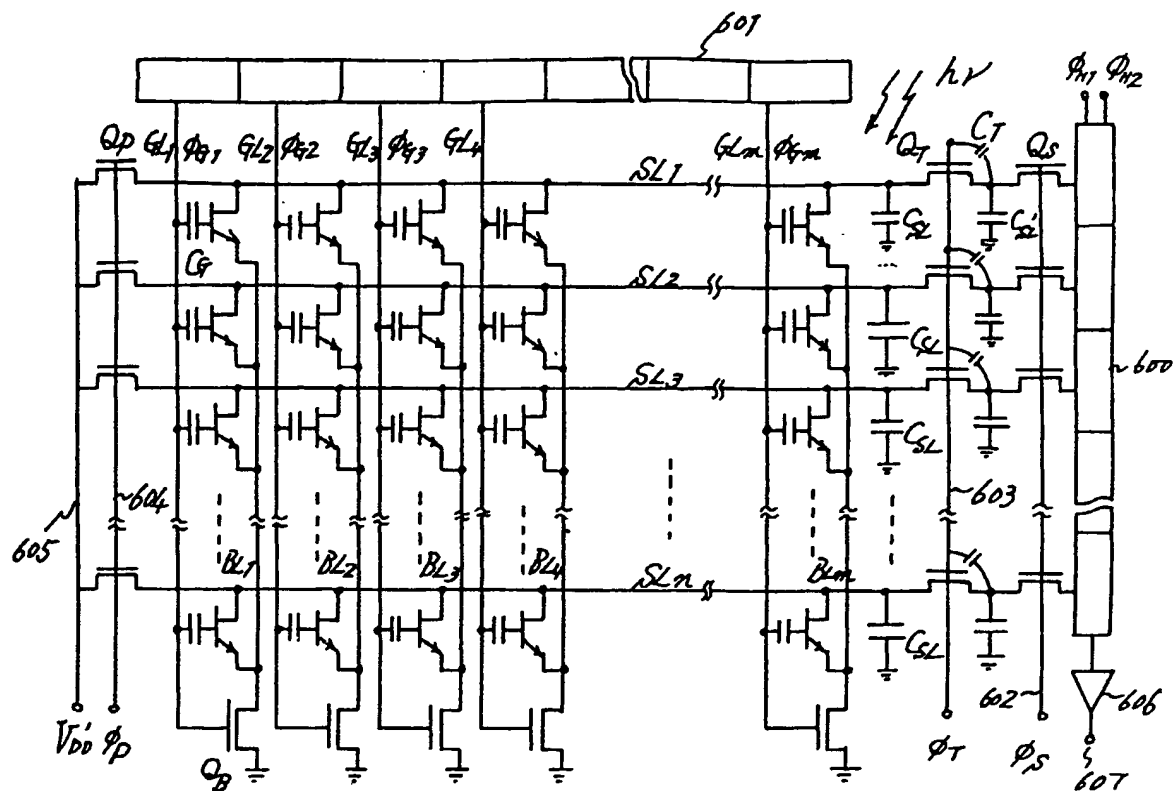 601
hν
ΦH1 ΦH2
QP GL1 ΦG1 GL2 ΦG2 GL3 ΦG3 GL4 GLm ΦGm QT CT QS
SL1
CSL CSL'
CG
SL2
CSL
SL3
600
CSL
604 603
605
BL1 BL2 BL3 BL4 BLm
SLn
CSL
602 606
VDD' ΦP ΦT ΦS
QB
607